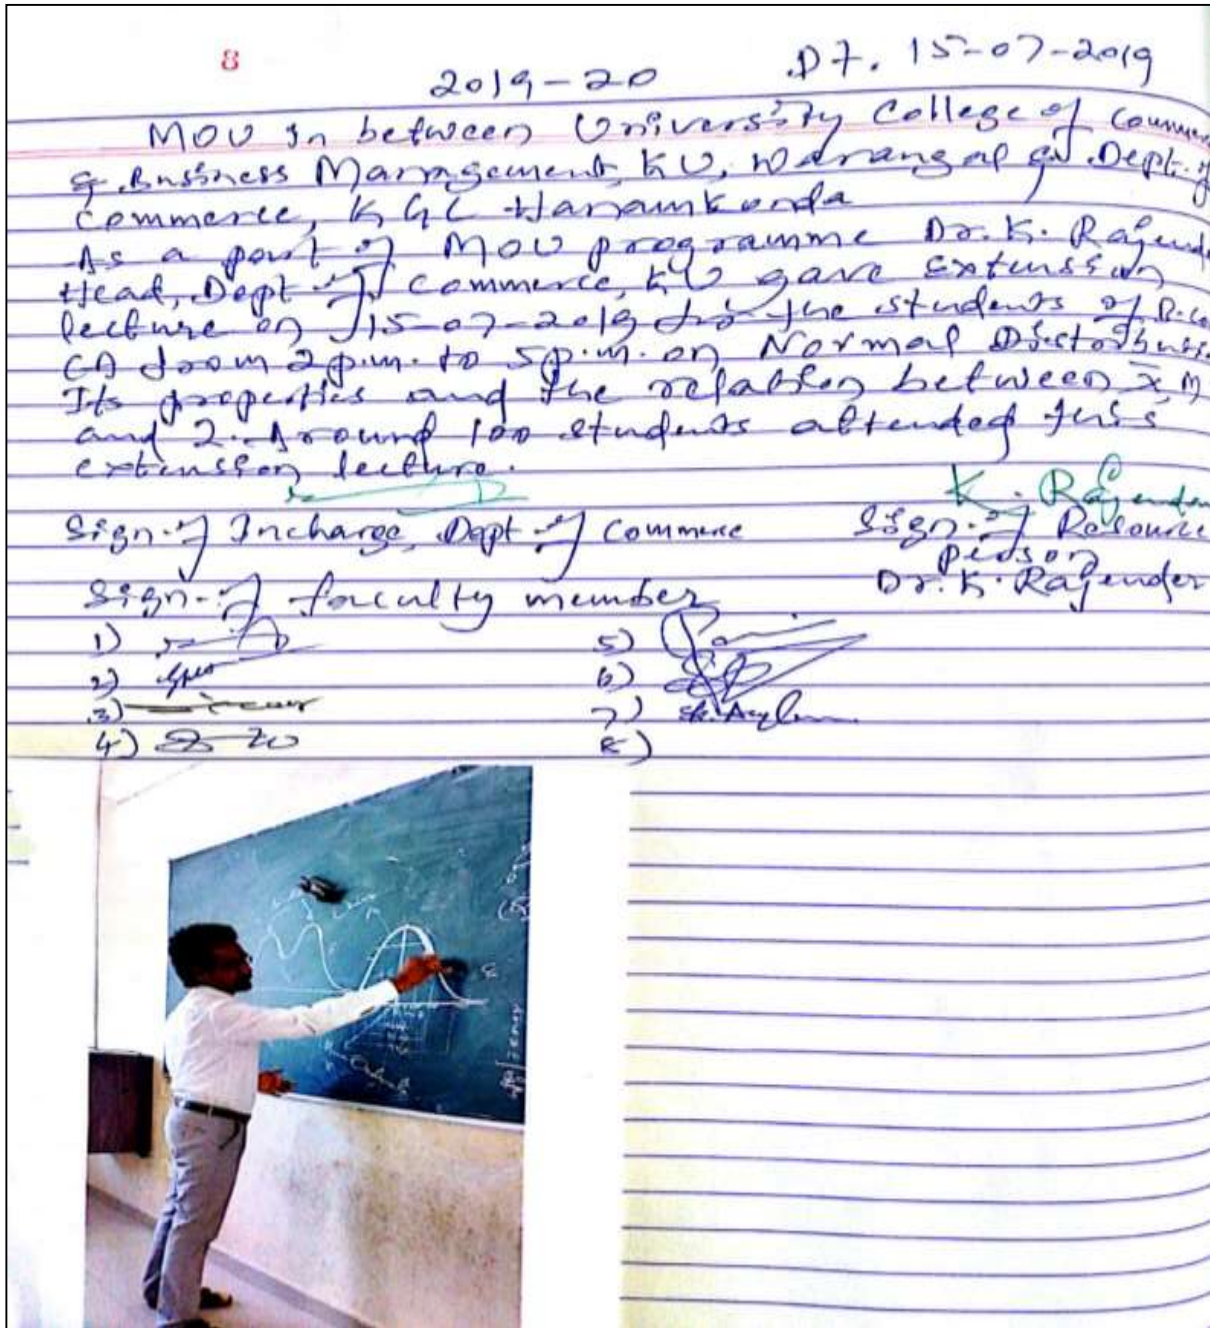 8
2019-20 DT. 15-07-2019
MOU In between University College of Commer
& Business Management, KU, Warangal & Dept. of
Commerce, KGC Hanamkonda
As a part of MOU programme Dr. K. Rajende
Head, Dept of Commerce, KU gave extension
lecture on 15-07-2019 for the students of B.co
CA from 2 p.m. to 5 p.m. on Normal Distributi
Its properties and the relation between x̄, M
and Z. Around 100 students attended this
extension lecture.
K. Rajender
Sign. of Incharge, Dept of Commerce Sign. of Resource
person
Dr. K. Rajender
Sign. of faculty member
1) 5)
2) 6)
3) 7)
4) 8)